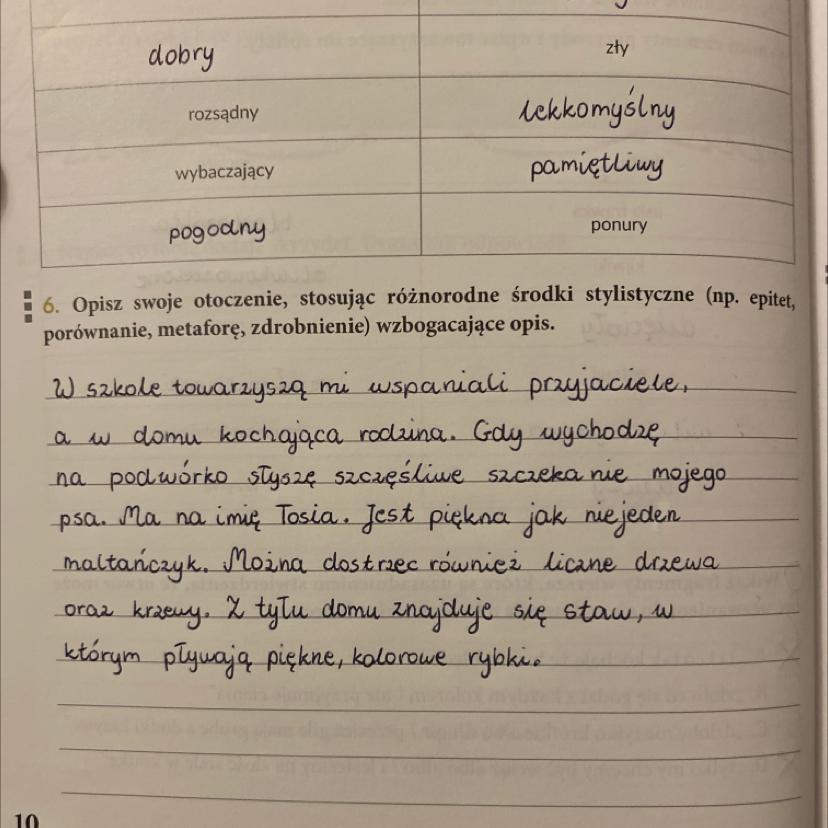 dobry zły
rozsądny lekkomyślny
wybaczający pamiętliwy
pogodny ponury
6. Opisz swoje otoczenie, stosując różnorodne środki stylistyczne (np. epitet,
porównanie, metaforę, zdrobnienie) wzbogacające opis.
W szkole towarzyszą mi wspaniali przyjaciele,
a w domu kochająca rodzina. Gdy wychodzę
na podwórko słyszę szczęśliwe szczekanie mojego
psa. Ma na imię Tosia. Jest piękna jak niejeden
maltańczyk. Można dostrzec również liczne drzewa
oraz krzewy. Z tyłu domu znajduje się staw, w
którym pływają piękne, kolorowe rybki.
10